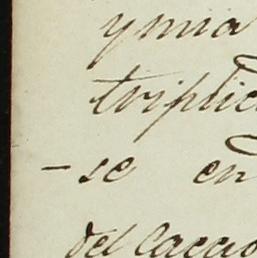 ymia
triplic
- se en
del Caccio